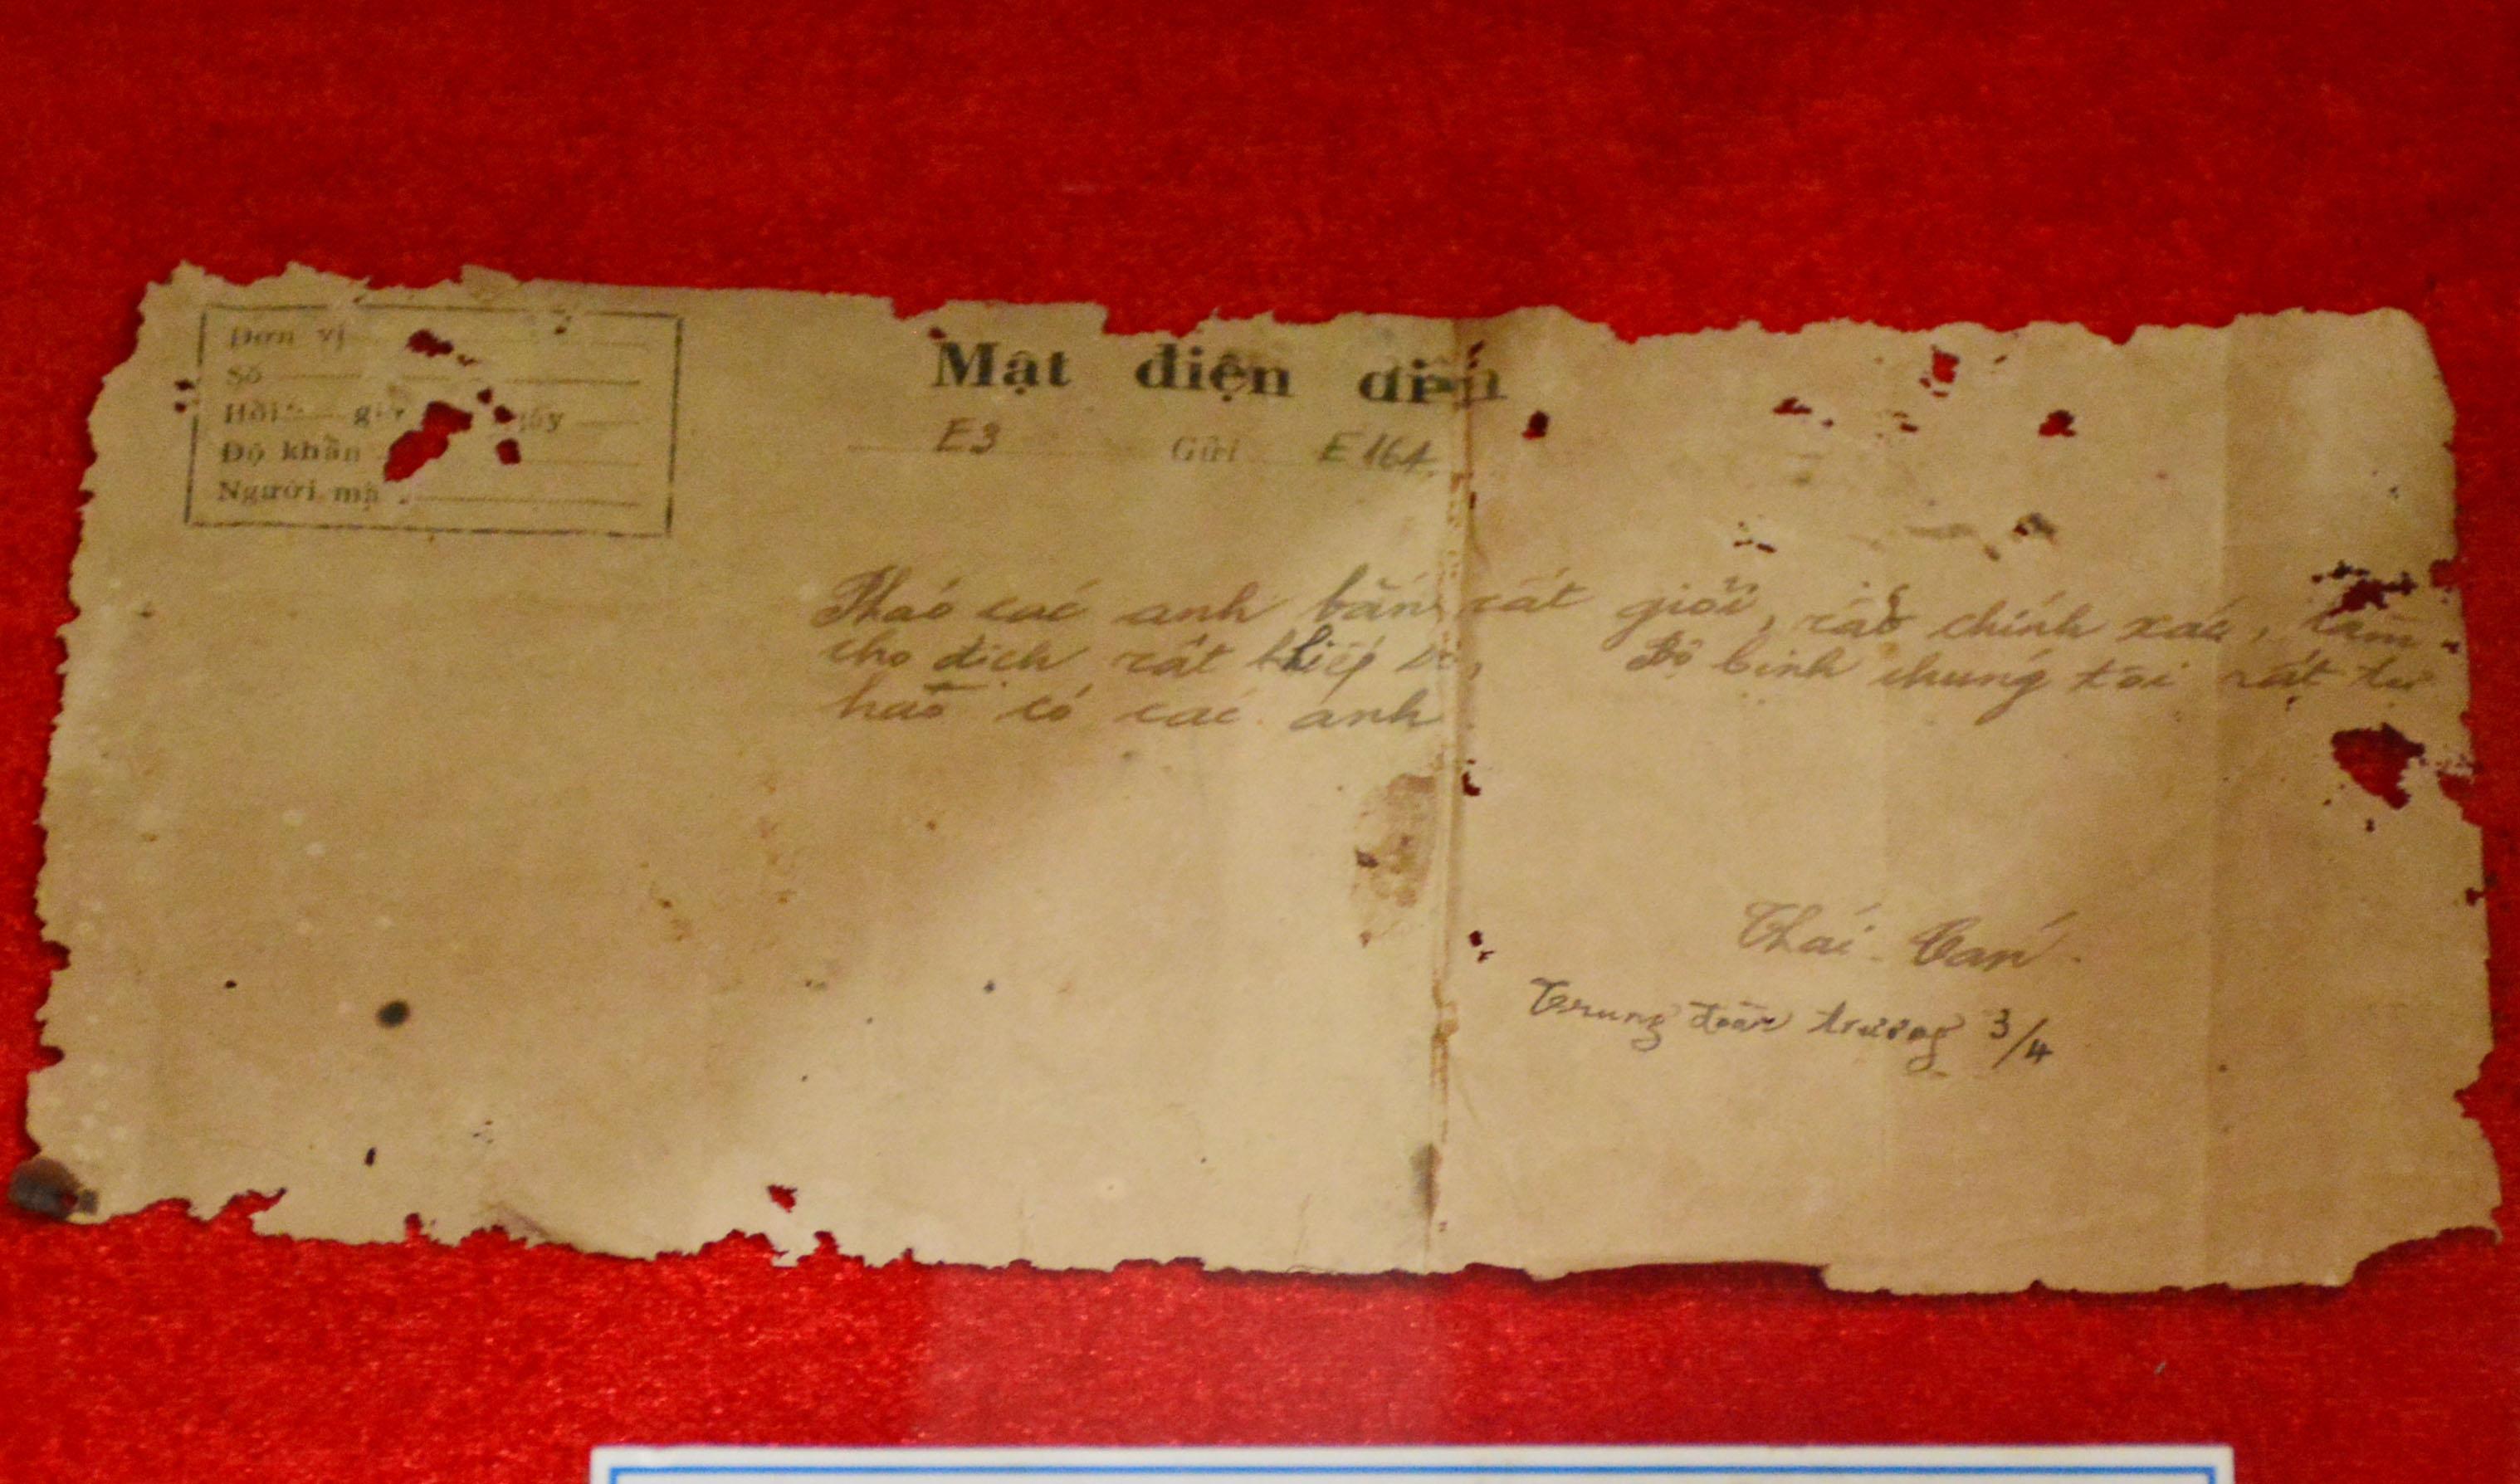 Đơn vị
Số
Hồi giờ
Độ khẩn
Người mã
Mật điện đến
E3 Gửi E 164
Pháo các anh bắn rất giỏi, rất chính xác, làm
cho địch rất khiếp sợ, Bộ binh chúng tôi rất tự
hào có các anh
Thái Can
Trung đoàn trưởng 3/4